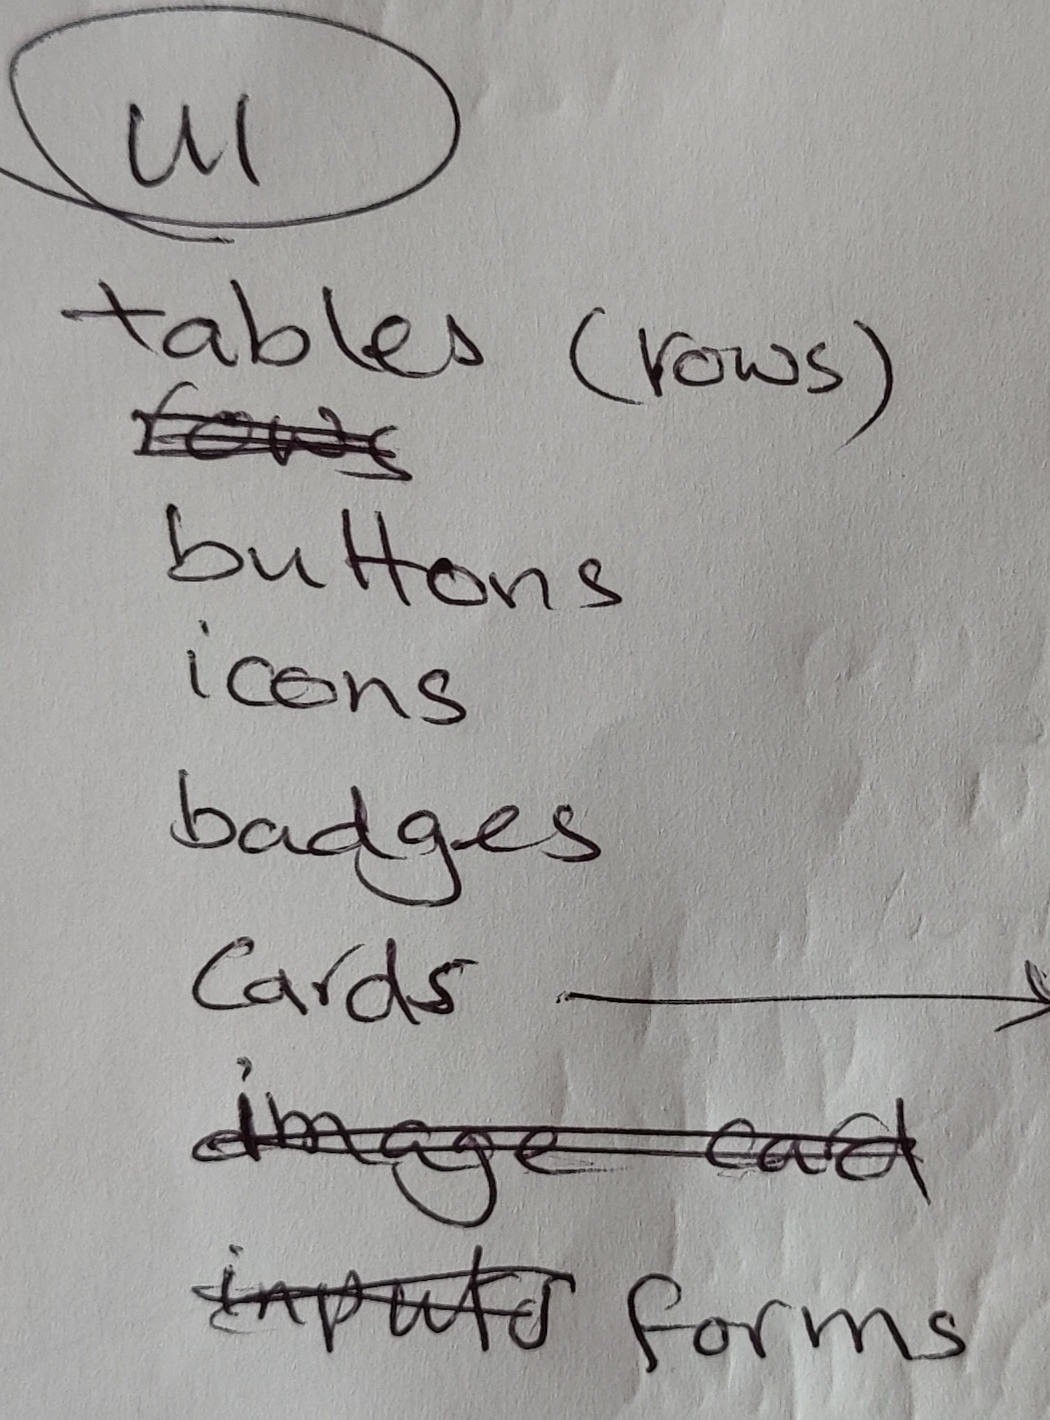 UI
tables (rows)
rows
buttons
icons
badges
Cards
image card
inputs forms